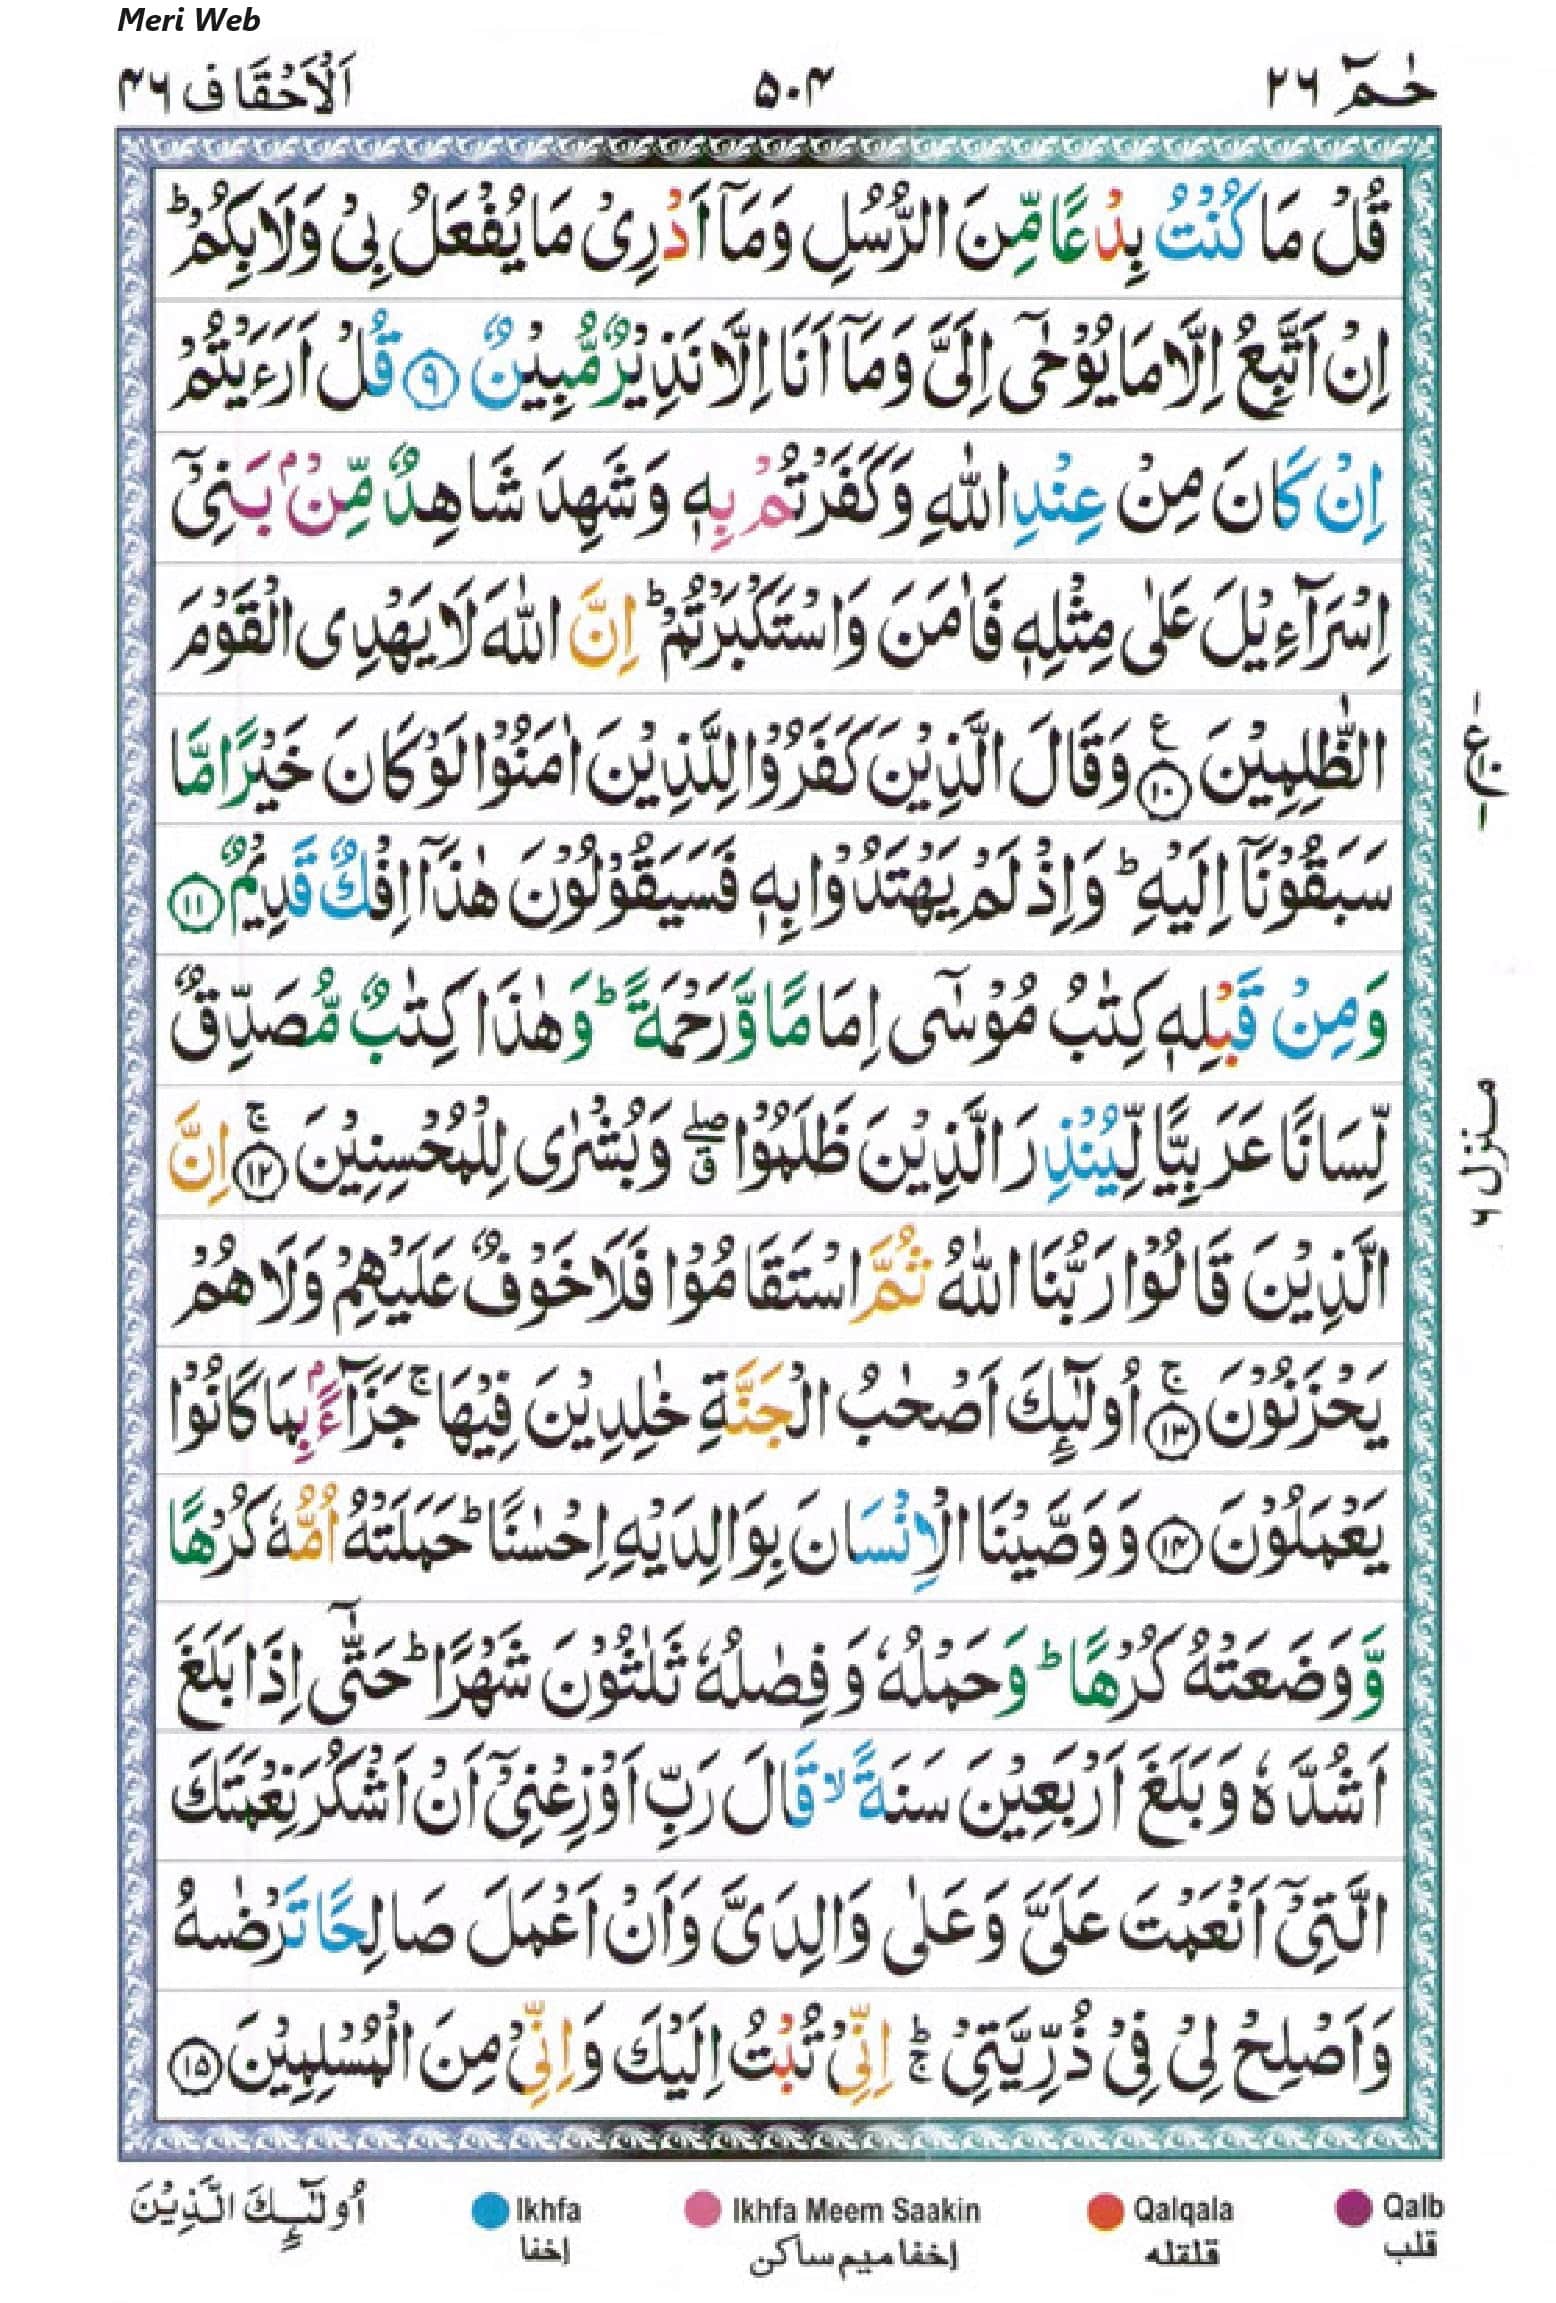 Meri Web
حٰمٓ ٢٦
٥٠٤
اَلْاَحْقَاف ٤٦
قُلْ مَا كُنْتُ بِدْعًا مِّنَ الرُّسُلِ وَمَاۤ اَدْرِىْ مَا يُفْعَلُ بِىْ وَلَا بِكُمْ ؕ
اِنْ اَتَّبِعُ اِلَّا مَا يُوْحٰٓى اِلَىَّ وَمَاۤ اَنَا اِلَّا نَذِيْرٌ مُّبِيْنٌ ۹ قُلْ اَرَءَيْتُمْ
اِنْ كَانَ مِنْ عِنْدِ اللّٰهِ وَكَفَرْتُمْ بِهٖ وَشَهِدَ شَاهِدٌ مِّنْۢ بَنِىْۤ
اِسْرَآءِيْلَ عَلٰى مِثْلِهٖ فَاٰمَنَ وَاسْتَكْبَرْتُمْ ؕ اِنَّ اللّٰهَ لَا يَهْدِى الْقَوْمَ
الظّٰلِمِيْنَ ۱۰ ع وَقَالَ الَّذِيْنَ كَفَرُوْا لِلَّذِيْنَ اٰمَنُوْا لَوْ كَانَ خَيْرًا مَّا
سَبَقُوْنَاۤ اِلَيْهِ ؕ وَاِذْ لَمْ يَهْتَدُوْا بِهٖ فَسَيَقُوْلُوْنَ هٰذَاۤ اِفْكٌ قَدِيْمٌ ۱۱
وَمِنْ قَبْلِهٖ كِتٰبُ مُوْسٰٓى اِمَامًا وَّرَحْمَةً ؕ وَهٰذَا كِتٰبٌ مُّصَدِّقٌ
لِّسَانًا عَرَبِيًّا لِّيُنْذِرَ الَّذِيْنَ ظَلَمُوْا ۖق وَبُشْرٰى لِلْمُحْسِنِيْنَ ۚ ۱۲ اِنَّ
الَّذِيْنَ قَالُوْا رَبُّنَا اللّٰهُ ثُمَّ اسْتَقَامُوْا فَلَا خَوْفٌ عَلَيْهِمْ وَلَا هُمْ
يَحْزَنُوْنَ ۚ ۱۳ اُولٰٓئِكَ اَصْحٰبُ الْجَنَّةِ خٰلِدِيْنَ فِيْهَا ۚ جَزَآءًۢ بِمَا كَانُوْا
يَعْمَلُوْنَ ۱۴ وَوَصَّيْنَا الْاِنْسَانَ بِوَالِدَيْهِ اِحْسٰنًا ؕ حَمَلَتْهُ اُمُّهٗ كُرْهًا
وَّوَضَعَتْهُ كُرْهًا ؕ وَحَمْلُهٗ وَفِصٰلُهٗ ثَلٰثُوْنَ شَهْرًا ؕ حَتّٰٓى اِذَا بَلَغَ
اَشُدَّهٗ وَبَلَغَ اَرْبَعِيْنَ سَنَةً ۙ قَالَ رَبِّ اَوْزِعْنِىْۤ اَنْ اَشْكُرَ نِعْمَتَكَ
الَّتِىْۤ اَنْعَمْتَ عَلَىَّ وَعَلٰى وَالِدَىَّ وَاَنْ اَعْمَلَ صَالِحًا تَرْضٰهُ
وَاَصْلِحْ لِىْ فِىْ ذُرِّيَّتِىْ ؕۚ اِنِّىْ تُبْتُ اِلَيْكَ وَاِنِّىْ مِنَ الْمُسْلِمِيْنَ ۱۵
منزل ٦
اُولٰٓئِكَ الَّذِيْنَ
Ikhfa
إخفا
Ikhfa Meem Saakin
إخفا ميم ساكن
Qalqala
قلقله
Qalb
قلب